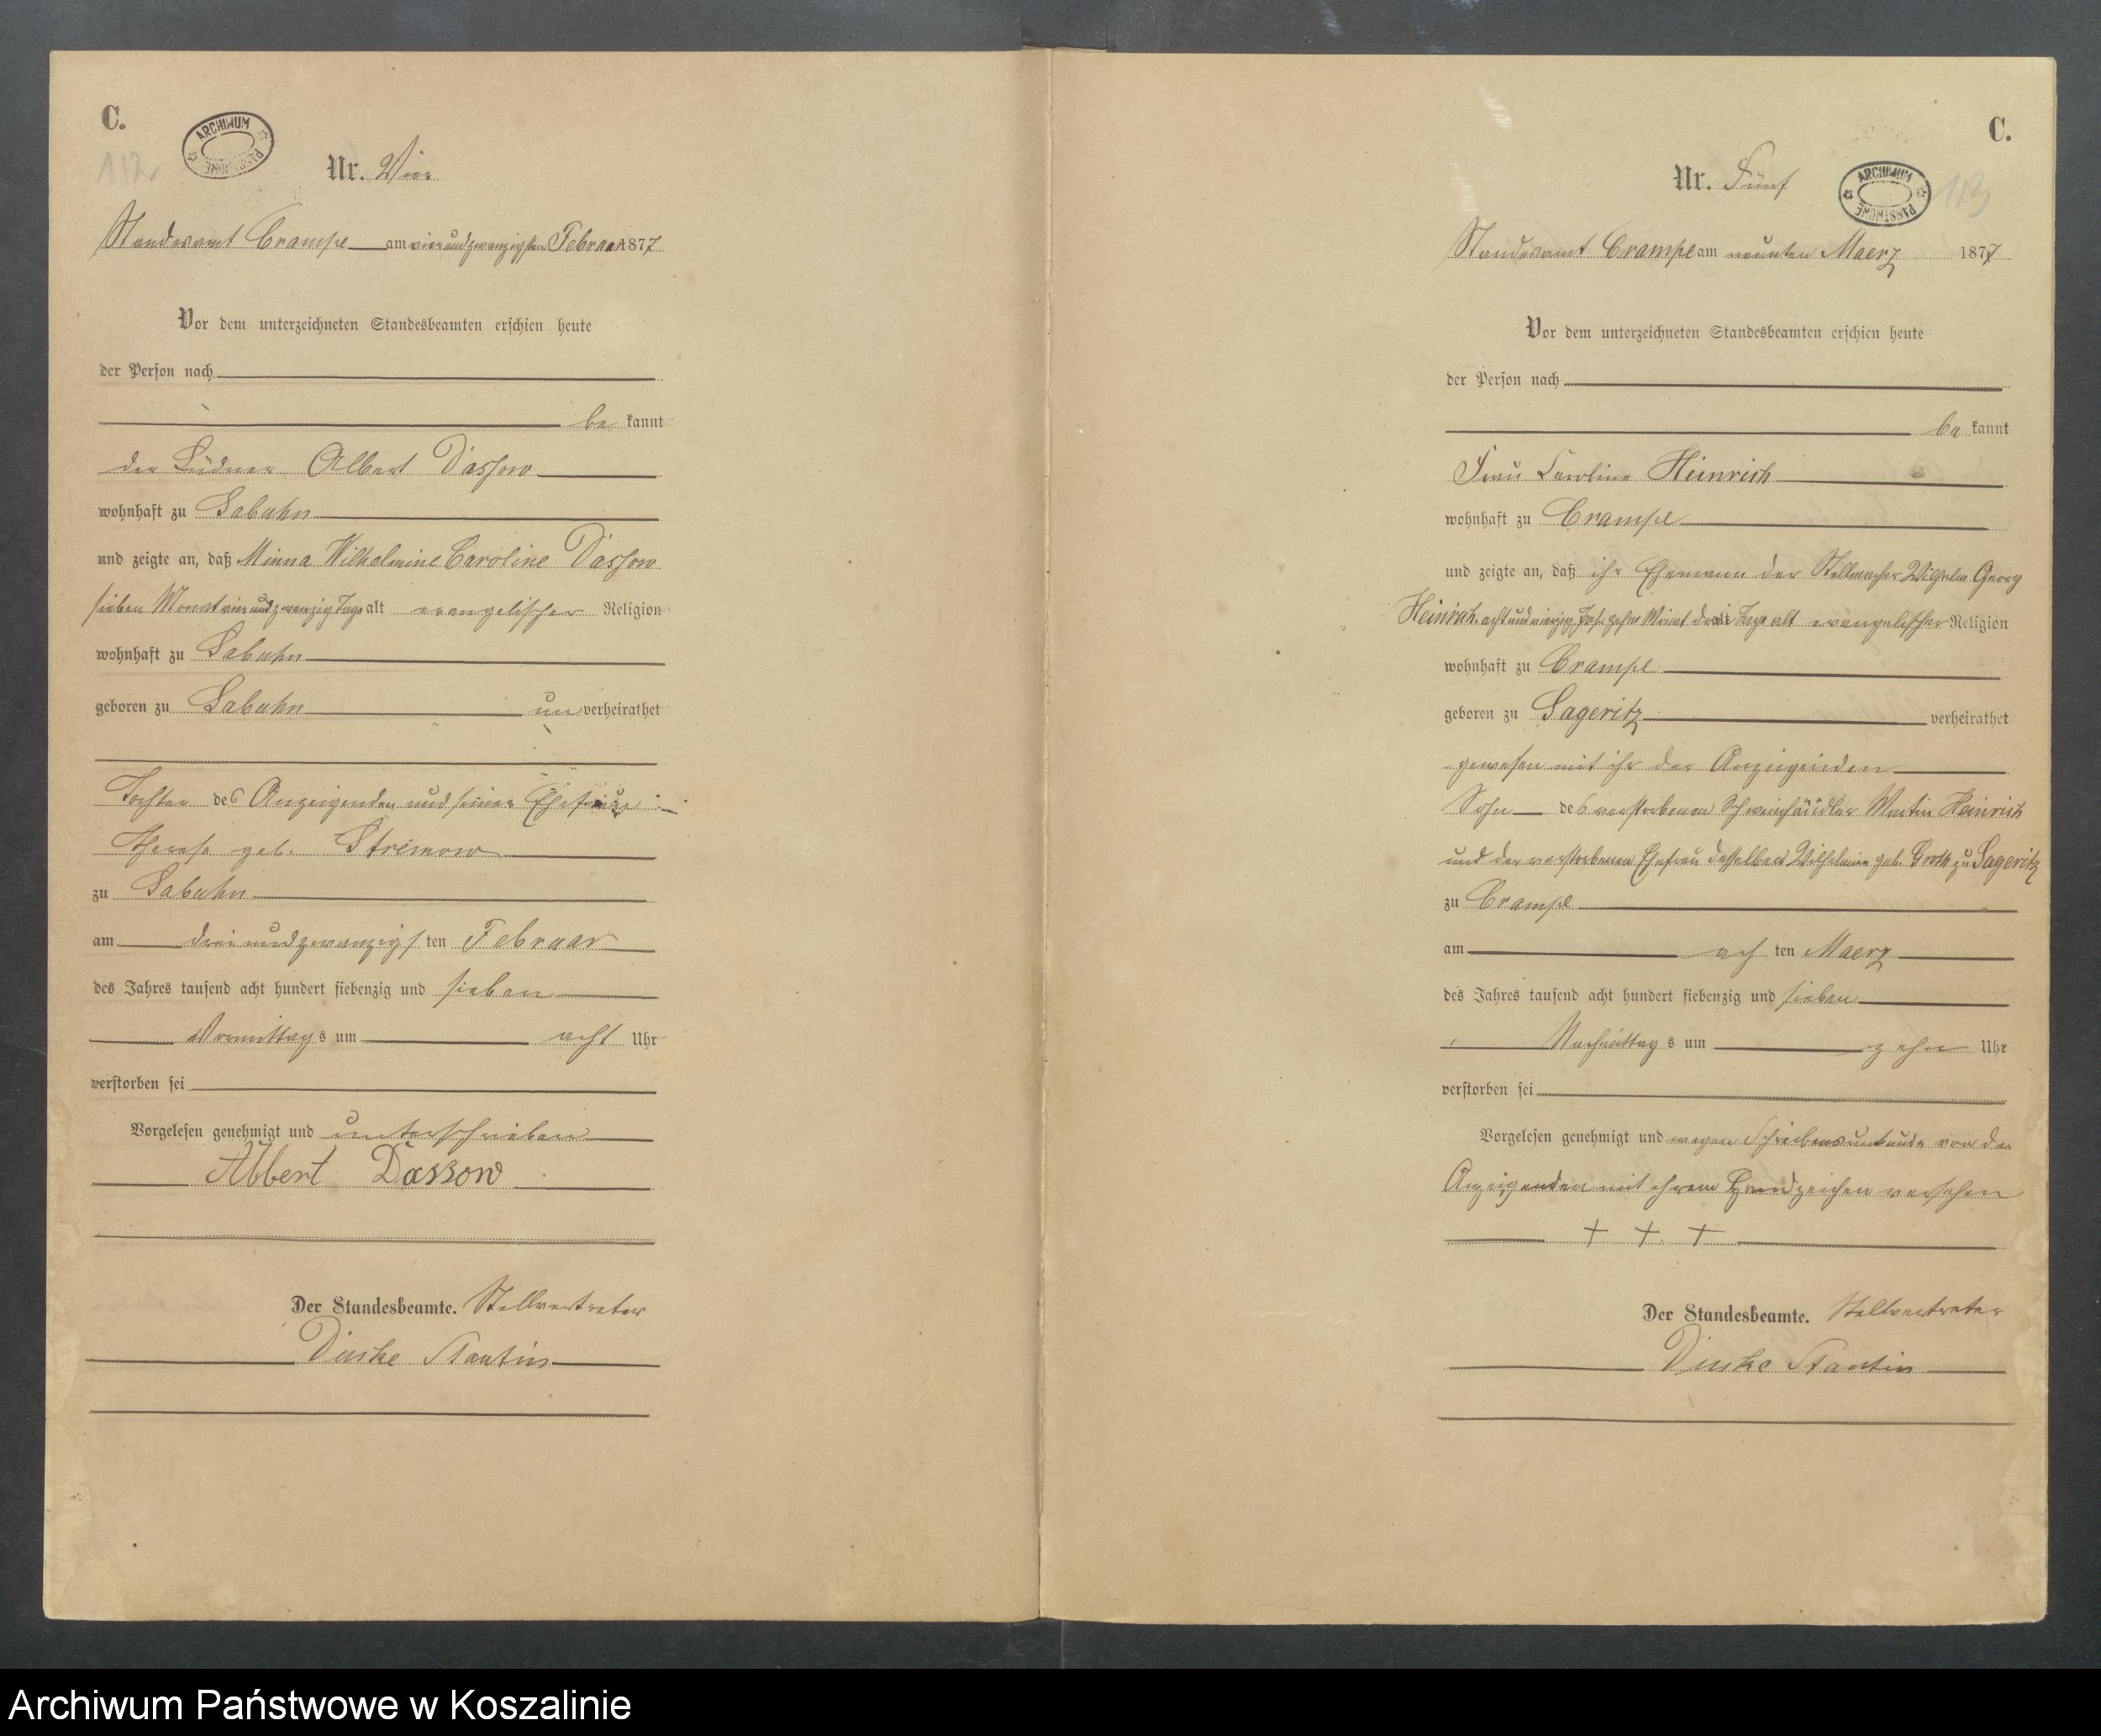 C.
ARCHIWUM PAŃSTWOWE
112
Nr. Vier
Standesamt Crampe am vierundzwanzigsten Februar 1877
Vor dem unterzeichneten Standesbeamten erschien heute
der Person nach
be kannt
der Büdner Albert Dassow
wohnhaft zu Labuhn
und zeigte an, daß Minna Wilhelmine Caroline Dassow
sieben Monat vierundzwanzig Tage alt evangelischer Religion
wohnhaft zu Labuhn
geboren zu Labuhn un verheirathet
Tochter des Anzeigenden und seiner Ehefrau
Therese geb. Stremow
zu Labuhn
am dreiundzwanzigs ten Februar
des Jahres tausend acht hundert siebenzig und sieben
Vormittag s um acht Uhr
verstorben sei
Vorgelesen genehmigt und unterschrieben
Albert Dassow
Der Standesbeamte. Stellvertreter
Dinske
C.
Nr. Fünf
ARCHIWUM PAŃSTWOWE
113
Standesamt Crampe am neunten Maerz 1877
Vor dem unterzeichneten Standesbeamten erschien heute
der Person nach
be kannt
Frau Caroline Heinrich
wohnhaft zu Crampe
und zeigte an, daß ihr Ehemann der Stellmacher Wilhelm Georg
Heinrich achtundvierzig Jahr zehn Monat drei Tage alt evangelischer Religion
wohnhaft zu Crampe
geboren zu Sageritz verheirathet
gewesen mit ihr der Anzeigenden
Sohn des verstorbenen Martin Heinrich
und der verstorbenen Ehefrau desselben Wilhelmine geb. Groth zu Sageritz
zu Crampe
am ach ten Maerz
des Jahres tausend acht hundert siebenzig und sieben
Nachmittag s um zehn Uhr
verstorben sei
Vorgelesen genehmigt und wegen Schreibensunkunde von der
Anzeigenden mit ihrem Handzeichen versehen
+ + +
Der Standesbeamte. Stellvertreter
Dinske
Archiwum Państwowe w Koszalinie